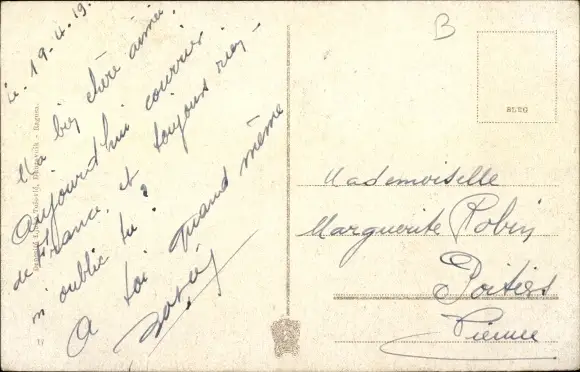 Le 19-4-19.
Ma bien chère aimée.
Aujourd'hui courrier
de France, et toujours rien-
m'oublie tu?
A toi Quand même
B
BLEQ
Mademoiselle
Marguerite Robin
Poitiers
Vienne
17